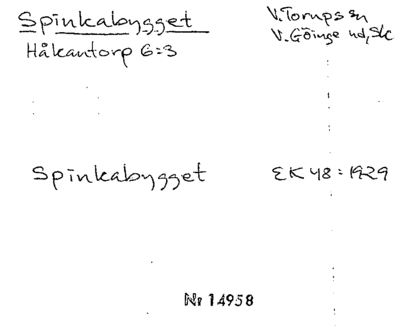 Spinkabygget
V. Torups sn
Håkantorp 6:3
V. Göinge hd, Sk
Spinkabygget
EK 48 : 1929
Nr 14958